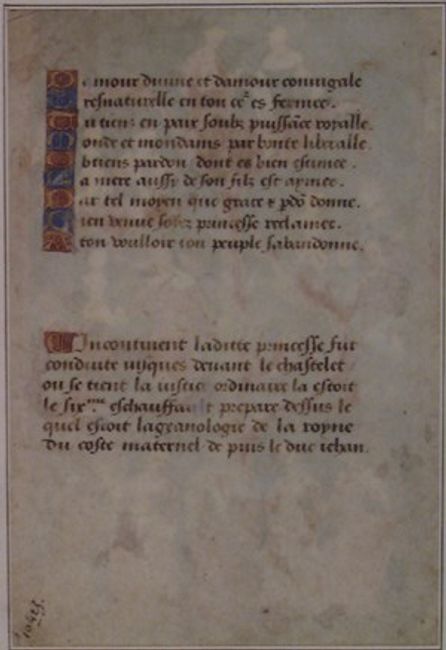 D amour diuine et damour coniugale
T resnaturelle en ton ce² es fermee.
T u tiens en paix soubz puissāce royalle.
M onde et mondains par bonte liberalle.
O btiens pardon dont es bien estimee.
L a mere aussy de son filz est aymee.
P ar tel moyen que grace & pdō donne.
B ien venue soiez princesse reclamee.
A ton voulloir ton peuple sabandonne.
Incontinent laditte princesse fut
conduite iusques deuant le chastelet
ou se tient la iustice ordinaire la estoit
le six.me eschauffault prepare dessus le
quel estoit lageanologie de la royne
du coste maternel de puis le duc iehan.